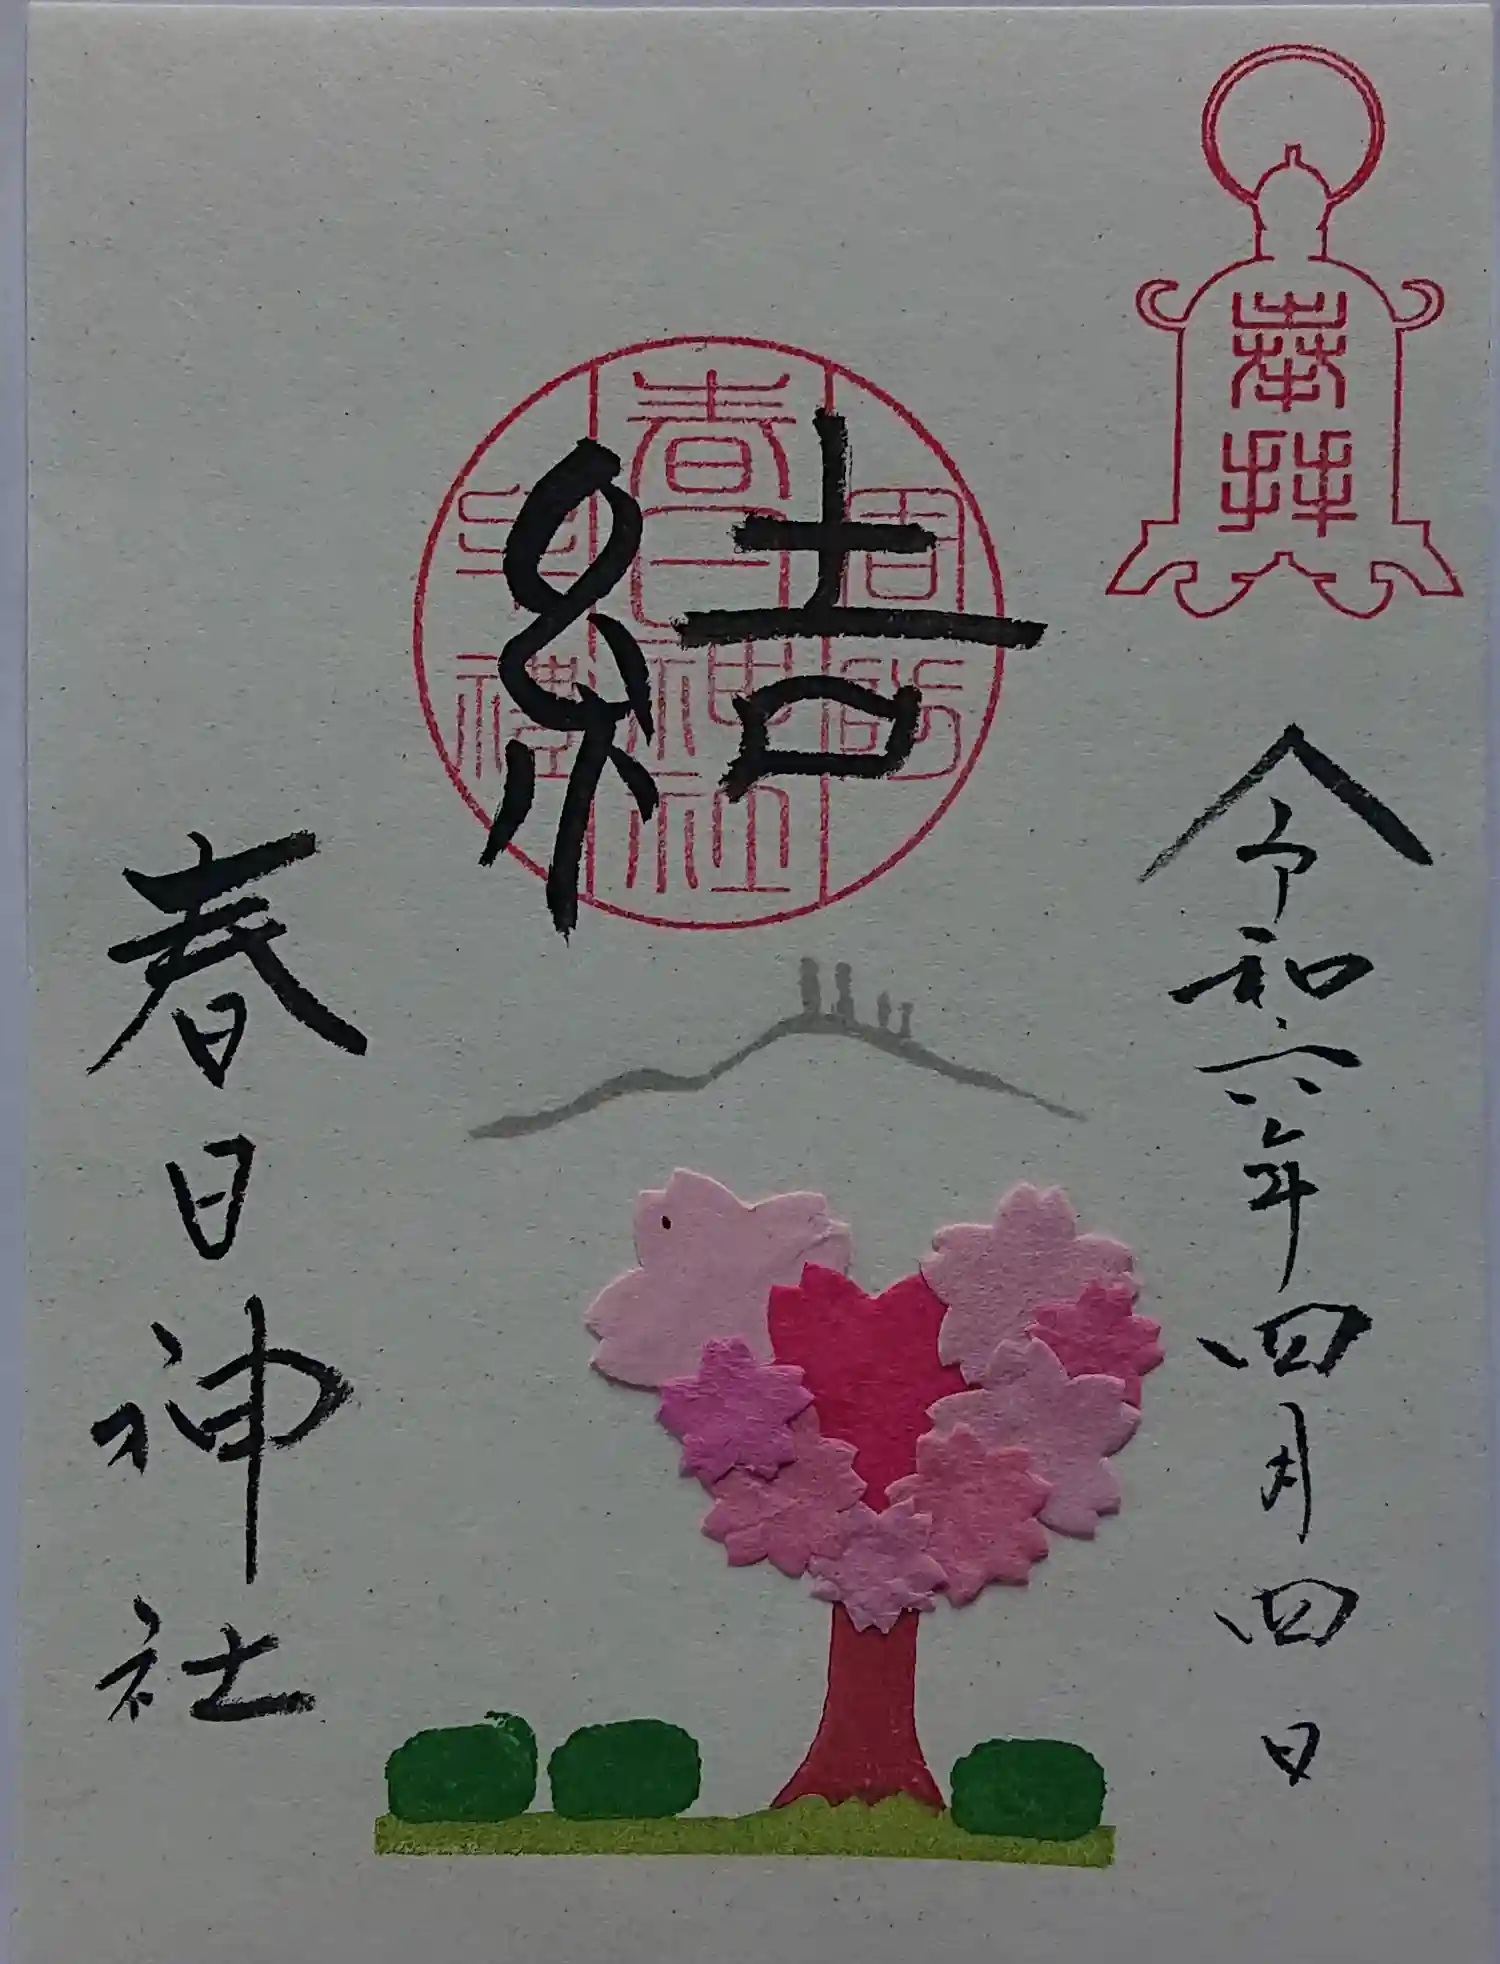 奉拝
令和六年四月四日
結
周防
春日神社
牟禮
春日神社